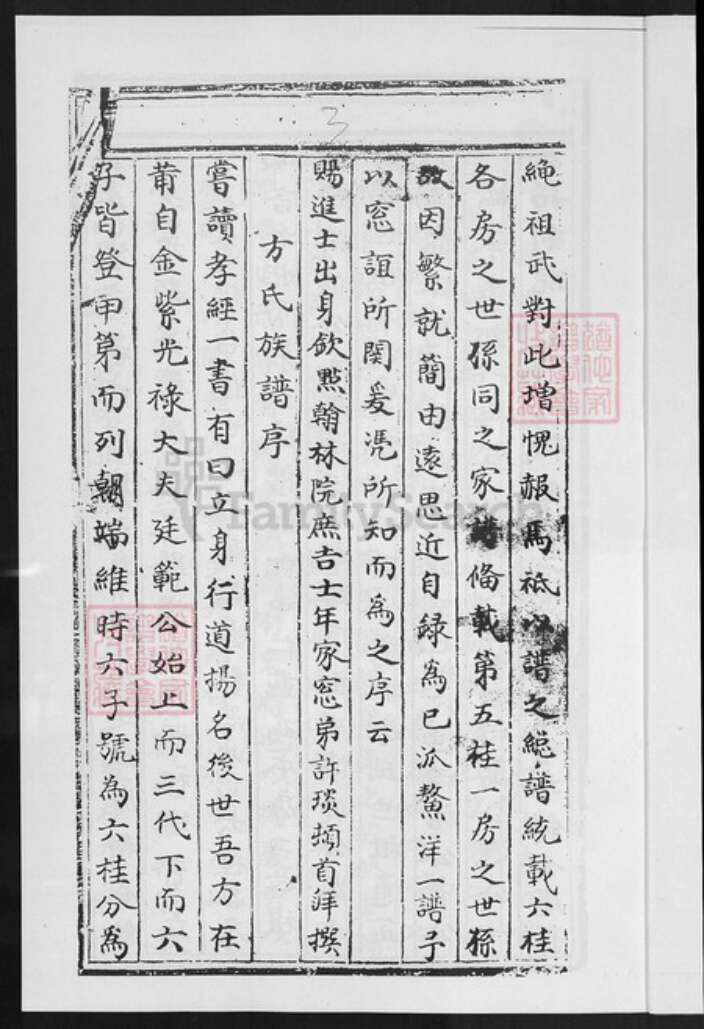 繩祖武對此增愧赧焉祗以譜之總譜統載六桂
各房之世孫同之家譜俻載第五桂一房之世孫
故因繁就簡由遠思近自録為已派鰲洋一譜予
以窓誼所関爰凴所知而為之序云
賜進士出身欽㸃翰林院庶吉士年家窓弟許琰頓首拜撰
方氏族譜序
嘗讀孝經一書有曰立身行道揚名後世吾方在
莆自金紫光禄大夫廷範公始上而三代下而六
子皆登甲第而列朝端維時六子號為六桂分為
3
FamilySearch